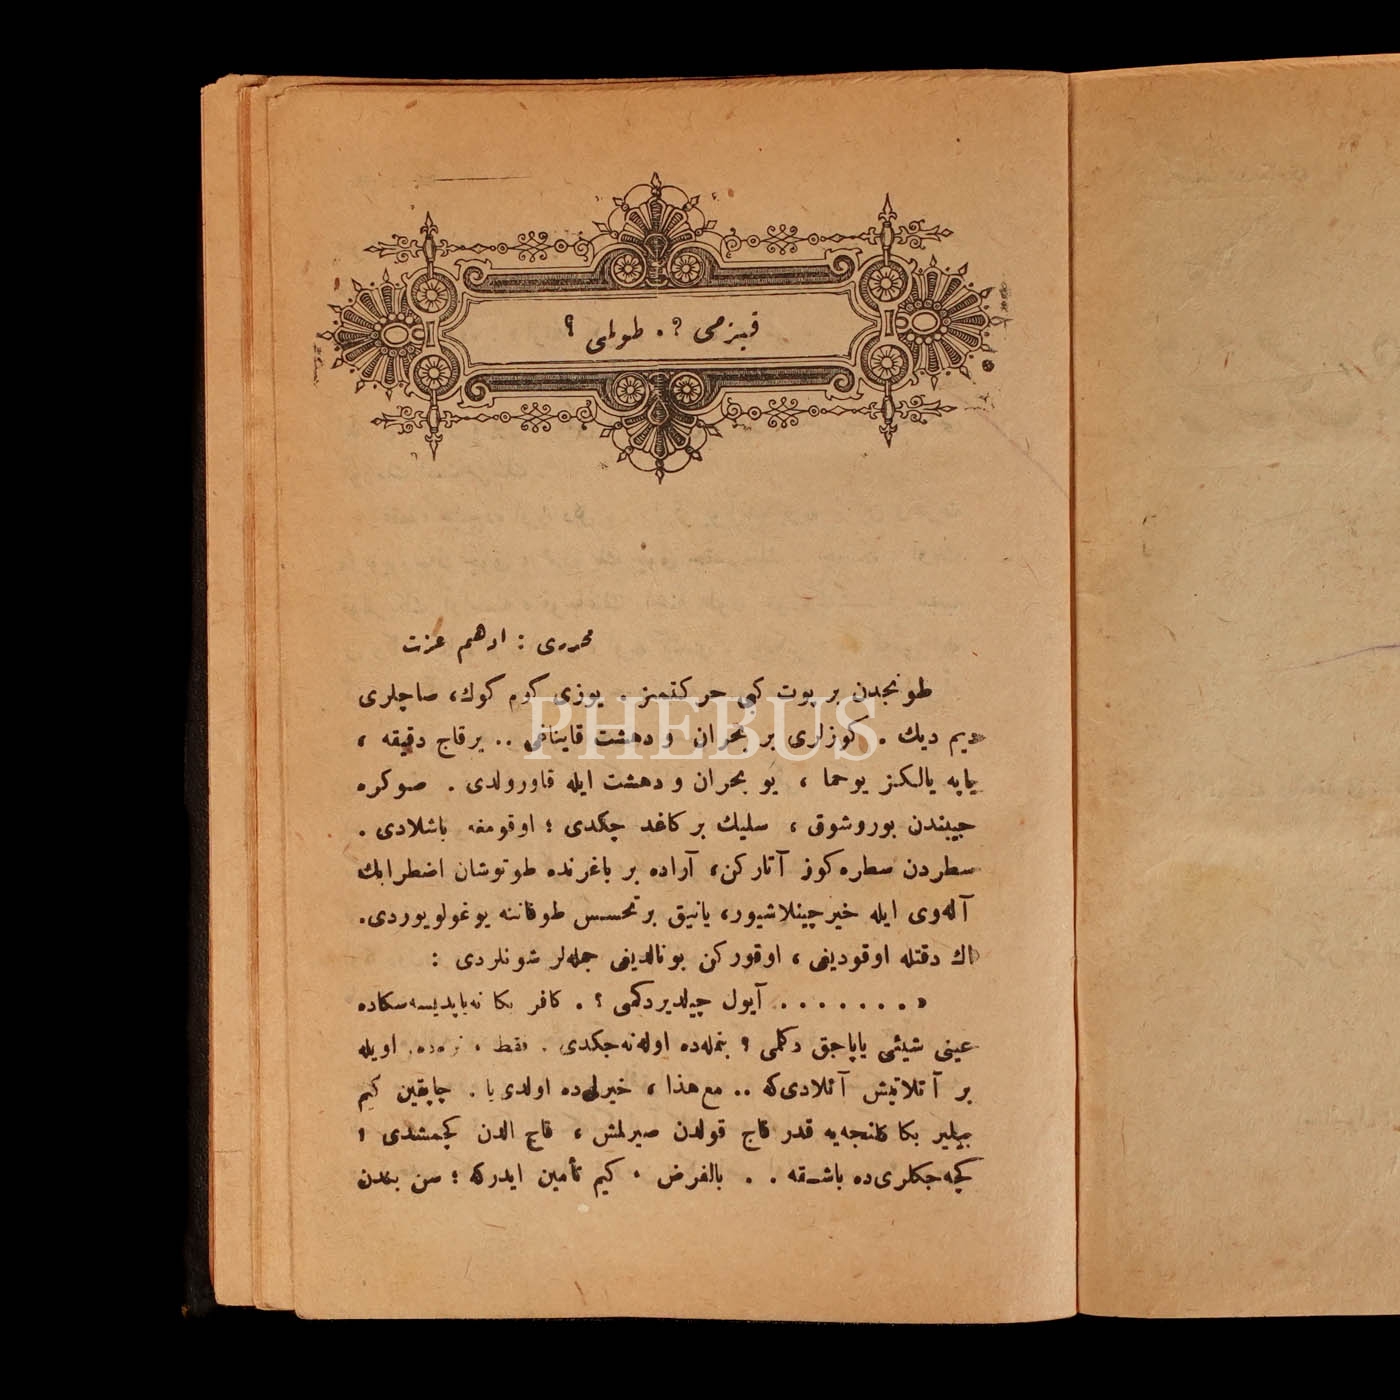 قیزمی ؟. طولمی ؟
محرری : ادهم عزت
طونجدن بر پوت کبی حرکتمز . یوزی کوم کوك، صاچلری
دیم دیك . کوزلری بر بحران و دهشت قایناغی .. برقاچ دقیقه ،
یاپه یالکز یوحما ، بو بحران و دهشت ایله قاورولدی . صوکره
جیبندن بوروشوق ، سلیك بر کاغد چکدی ؛ اوقومغه باشلادی .
سطردن سطره کوز آتارکن، آراده بر باغرنده طوتوشان اضطرابك
آله‌وی ایله خیرچینلاشیور، یانیق بر تحسس طوفاننه یوغولویوردی.
اك دقتله اوقودیغی ، اوقورکن بونالدیغی جمله‌لر شونلردی :
« . . . . . . . آیول چیلدیردکمی ؟ . کافر بکا نه‌یاپدیسه سکاده
عینی شیئی یاپاجق دکلمی ؟ بنمله‌ده اوله‌نه‌جکدی . فقط ، نره‌ده. اویله
بر آتلاتیش آتلادی‌که .. مع‌هذا ، خیرلی‌ده اولدی یا . چاپقین کیم
بیلیر بکا کلنجه‌یه قدر قاچ قولدن صیرلمش ، قاچ الدن کچمشدی ؛
کچه‌جکلری‌ده باشقه . . بالفرض ، کیم تأمین ایدرکه ؛ سن بندن
PHEBUS